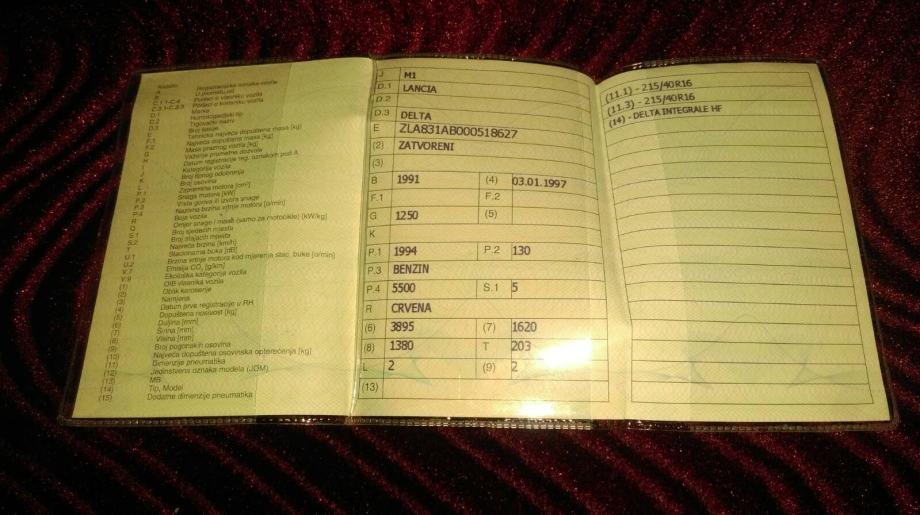 A Registracijska oznaka vozila
C.1.1-C.4 Podaci o vlasniku vozila
D.1 Marka
D.2 Homologacijski tip
D.3 Trgovački naziv
E Broj šasije
F.1 Tehnička najveća dopuštena masa [kg]
F.2 Najveća dopuštena masa [kg]
G Masa praznog vozila [kg]
H Važenje prometne dozvole
I Datum registracije reg. oznakom pod A
J Kategorija vozila
K Broj tipnog odobrenja
L Broj osovina
P.1 Zapremina motora [cm³]
P.2 Snaga motora [kW]
P.3 Vrsta goriva ili izvora snage
P.4 Nazivna brzina vrtnje motora [o/min]
R Boja vozila
Q Omjer snage i mase (samo za motocikle) [kW/kg]
S.1 Broj sjedećih mjesta
S.2 Broj stajaćih mjesta
T Najveća brzina [km/h]
U.1 Stacionarna buka [dB]
U.2 Brzina vrtnje motora kod mjerenja stac. buke [o/min]
V.7 Emisija CO₂ [g/km]
V.9 Ekološka kategorija vozila
(1) OIB vlasnika vozila
(2) Oblik karoserije
(3) Namjena
(4) Datum prve registracije u RH
(5) Dopuštena nosivost [kg]
(6) Duljina [mm]
(7) Širina [mm]
(8) Visina [mm]
(9) Broj pogonskih osovina
(10) Najveća dopuštena osovinska opterećenja [kg]
(11) Dimenzije pneumatika
(12) Jedinstvena oznaka modela (JOM)
(13) MB
(14) Tip, Model
(15) Dodatne dimenzije pneumatika
J M1
D.1 LANCIA
D.2
D.3 DELTA
E ZLA831AB000518627
(2) ZATVORENI
(3)
B 1991 (4) 03.01.1997
F.1 F.2
G 1250 (5)
K
P.1 1994 P.2 130
P.3 BENZIN
P.4 5500 S.1 5
R CRVENA
(6) 3895 (7) 1620
(8) 1380 T 203
L 2 (9) 2
(13)
(11.1) - 215/40R16
(11.3) - 215/40R16
(14) - DELTA INTEGRALE HF